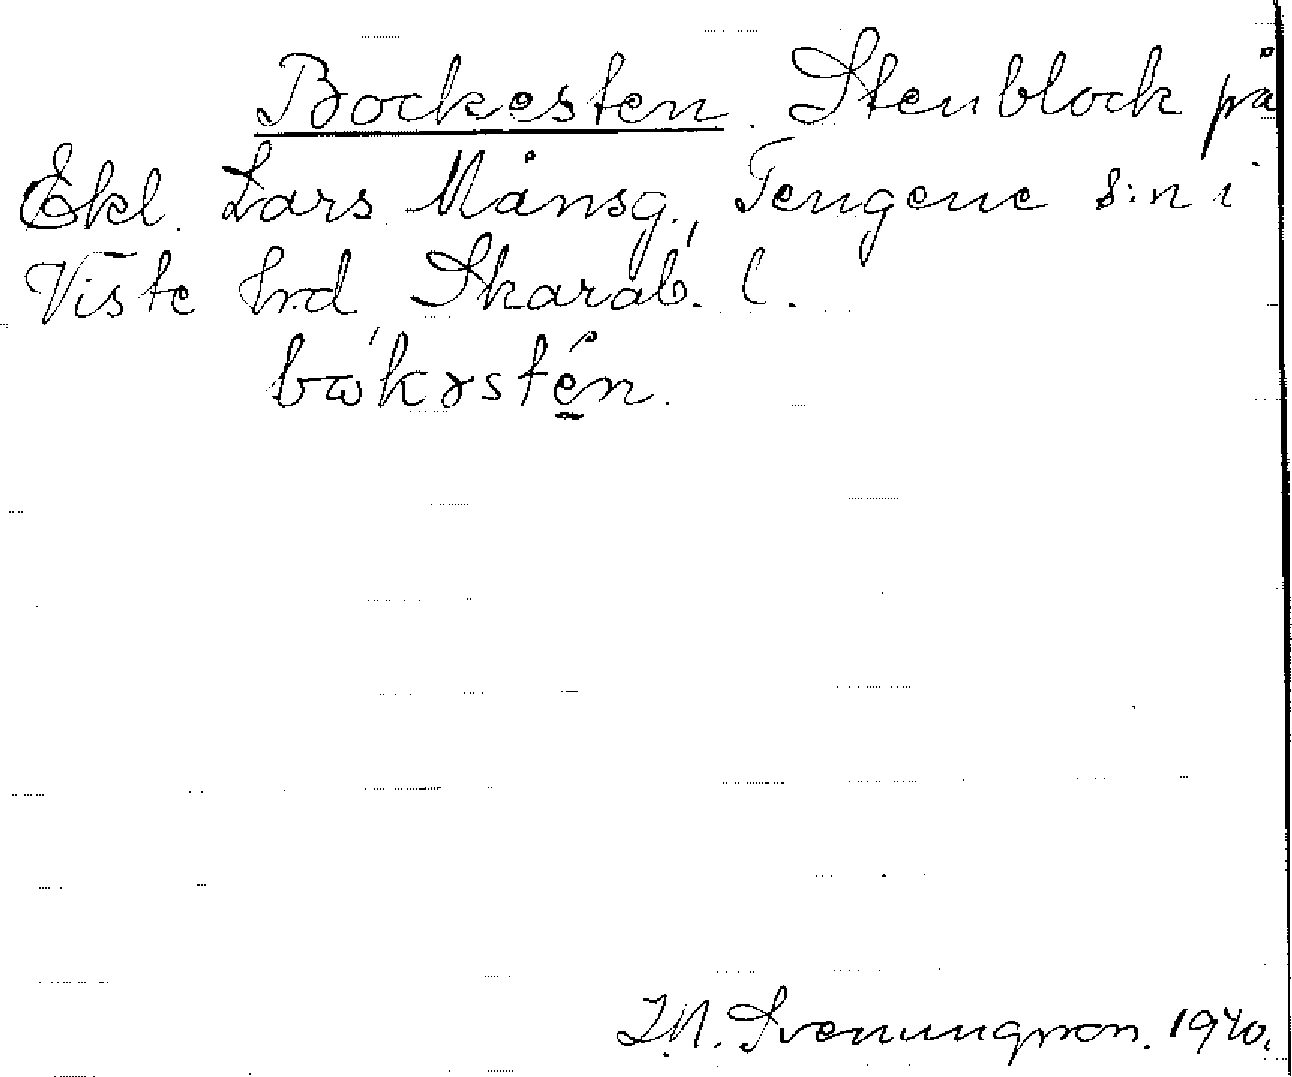 Bockesten. Stenblock på
Ekl. Lars Månsg., Tengene s:n i
Viste hrd, Skarab. l.
bωkɤstén.
J.N. Svenungsson. 1940.